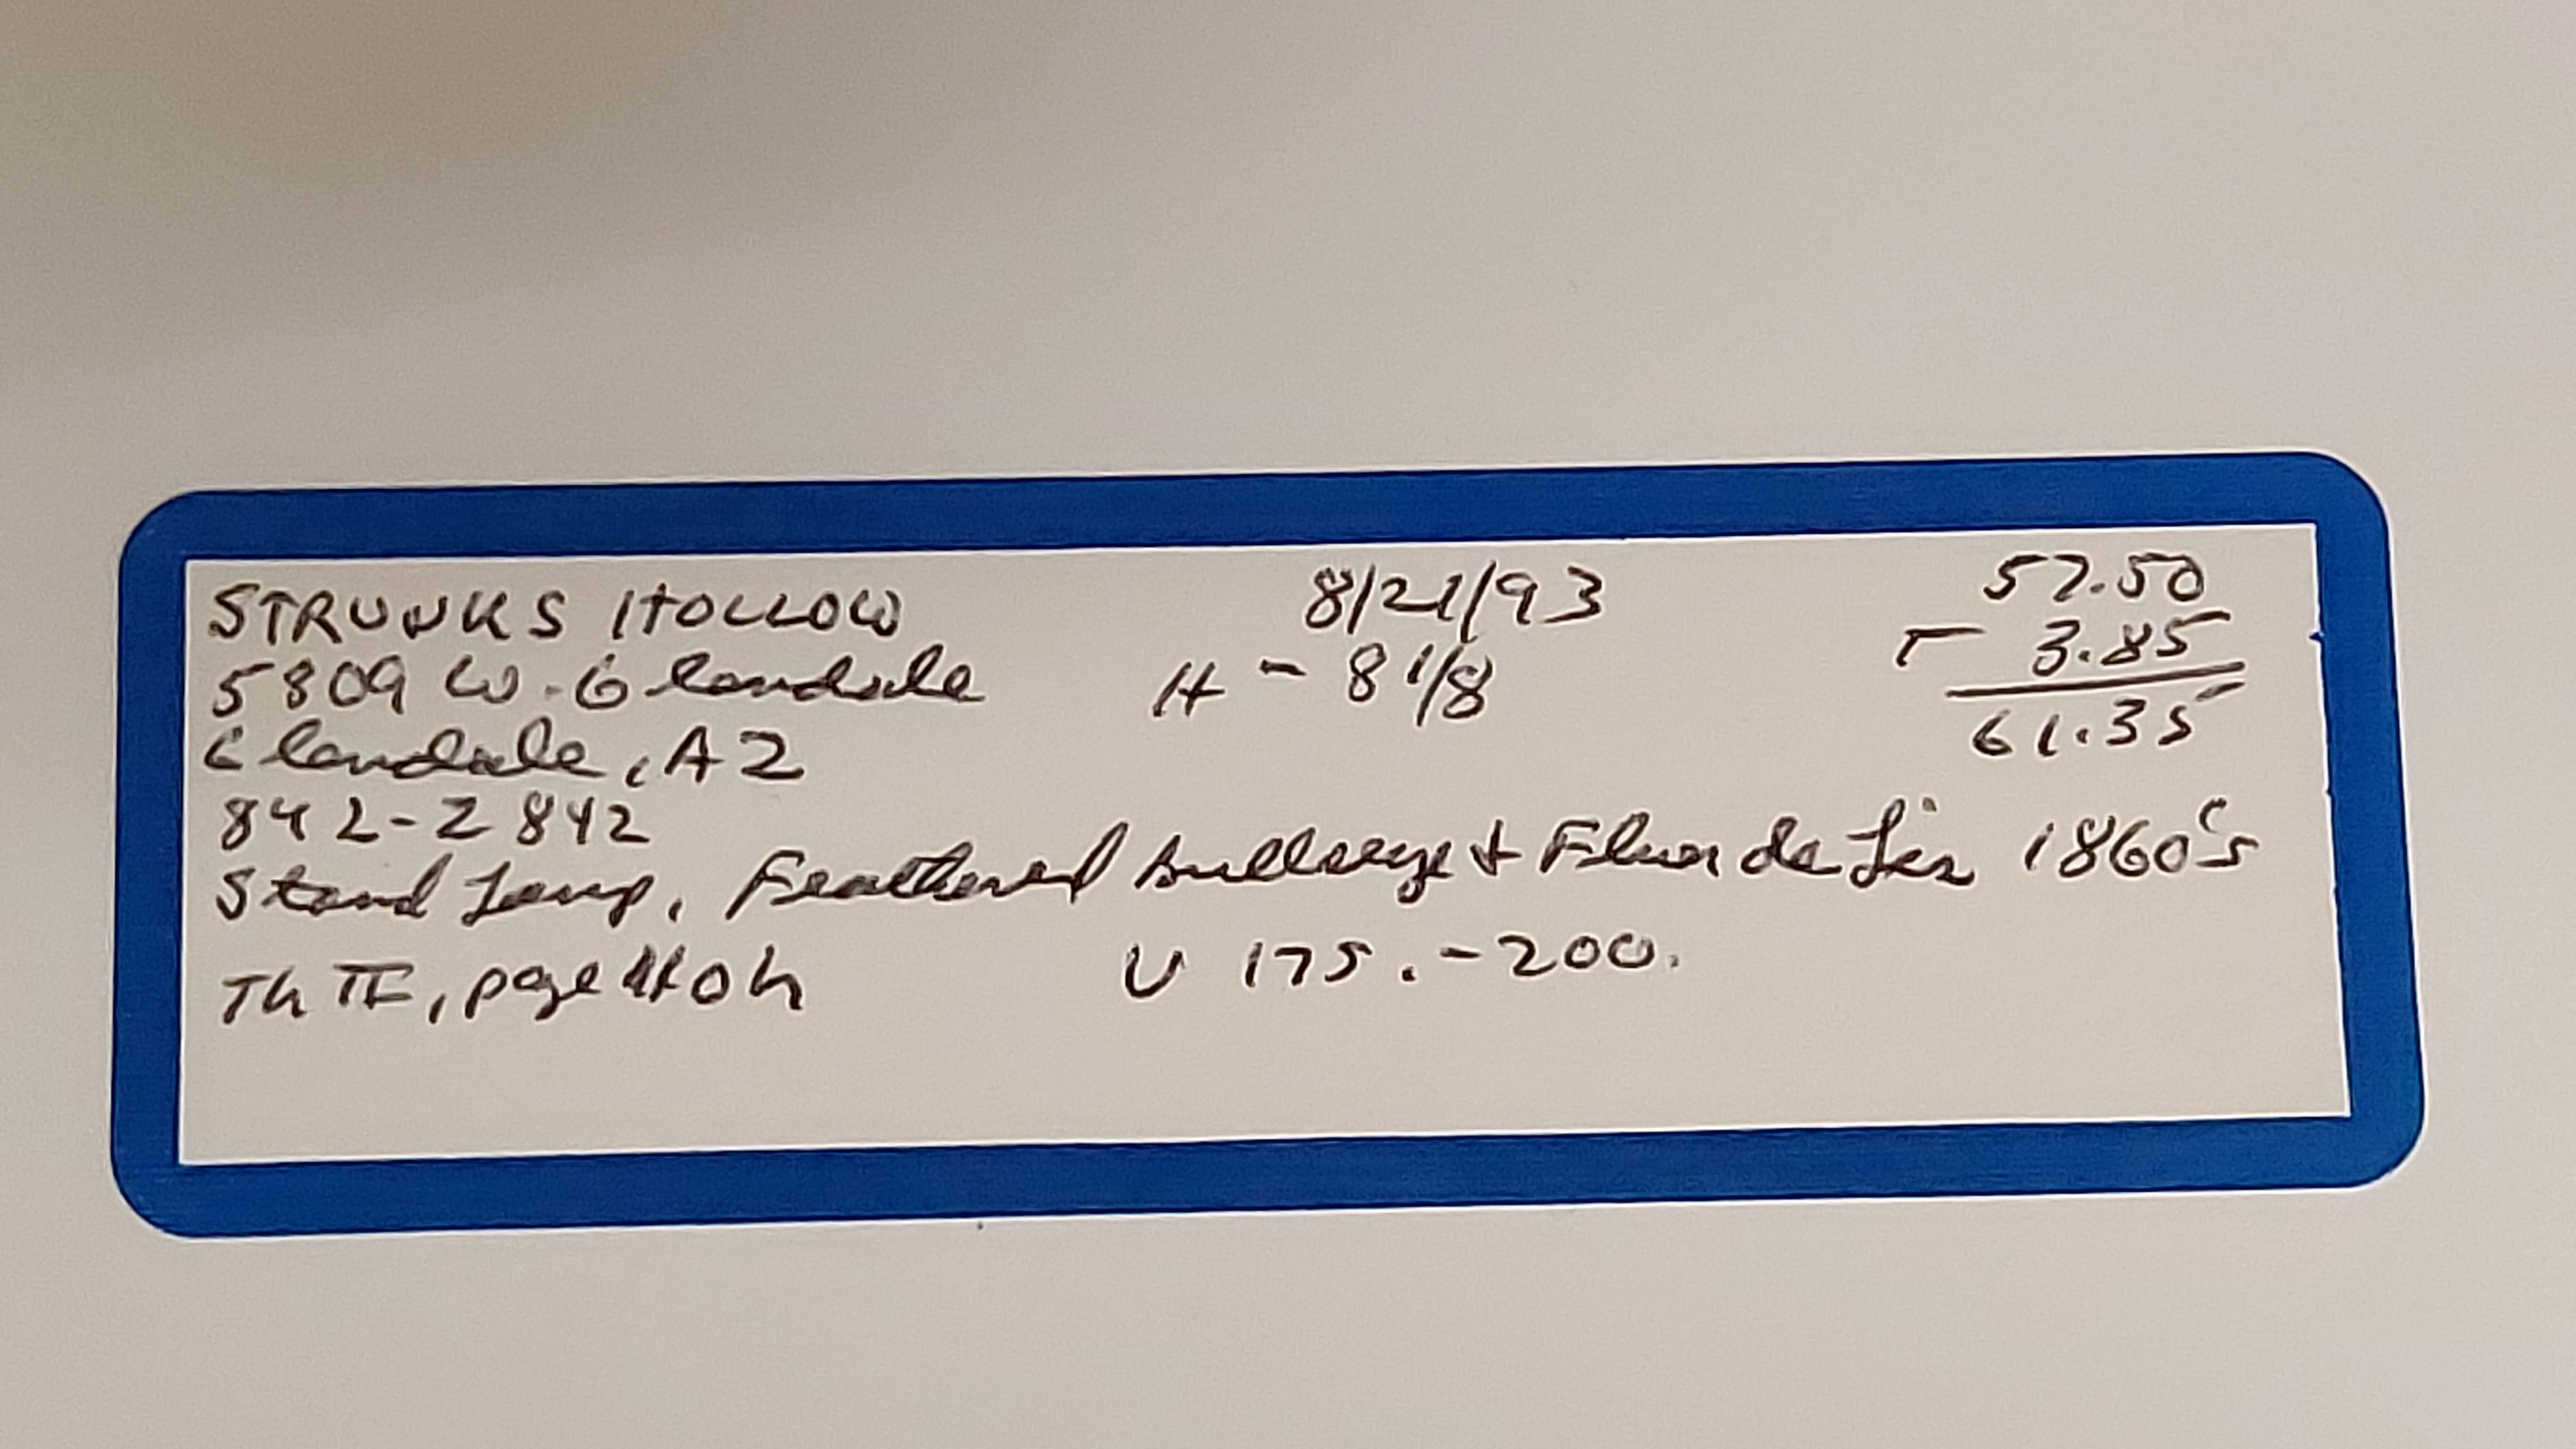 STRUNKS HOLLOW 8/21/93 57.50
5809 W. Glendale H - 8 1/8 T 3.85
Glendale, AZ 61.35
842-2842
Stand Lamp, Feathered Bullseye + Fleur de Lis 1860's
Th II, page 40 h V 175. - 200.